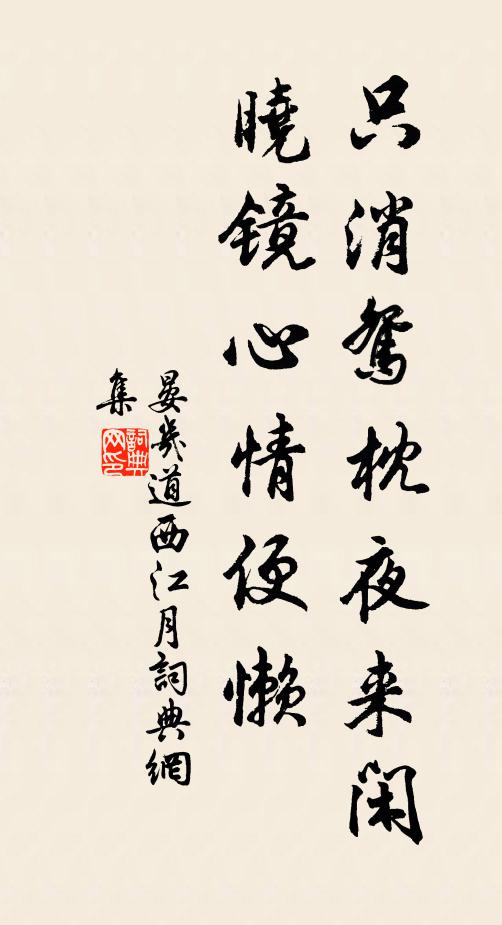 只消鸳枕夜来闲
曉镜心情便懒
晏幾道西江月詞典網
集
詞典网印